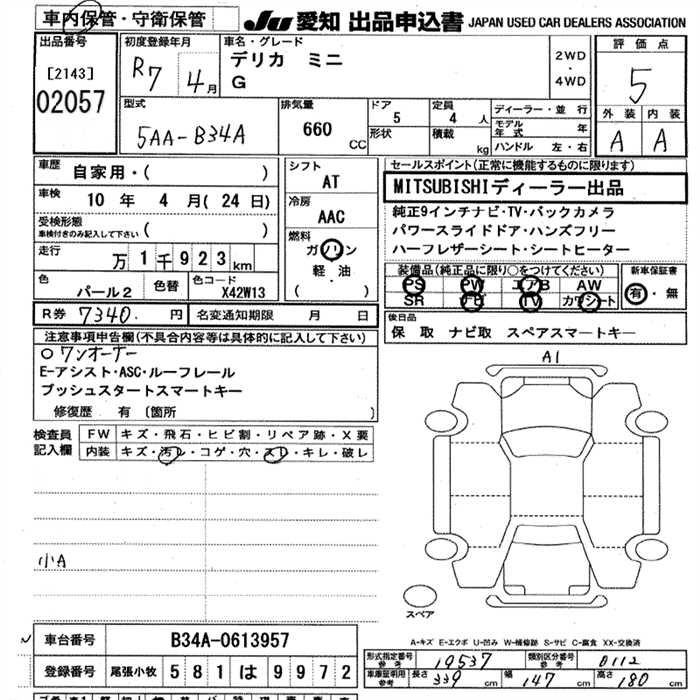 車内保管・守衛保管
JU 愛知 出品申込書 JAPAN USED CAR DEALERS ASSOCIATION
出品番号
[2143]
02057
初度登録年月
R7 4月
車名・グレード
デリカ ミニ
G
2WD
・
4WD
評価点
5
外装 内装
A A
型式
5AA-B34A
排気量
660 CC
ドア
5
形状
定員
4 人
積載
kg
ディーラー・並行
モデル年式 年
ハンドル 左・右
車歴
自家用・( )
車検
10 年 4 月 ( 24 日)
受検形態
車検付きのみ記入して下さい
( )
走行
万 1 千 9 2 3 km
色
パール2
色替
色コード
X42W13
シフト
AT
冷房
AAC
燃料
ガソリン
軽・油
( )
セールスポイント(正常に機能するものに限ります)
MITSUBISHIディーラー出品
純正9インチナビ・TV・バックカメラ
パワースライドドア・ハンズフリー
ハーフレザーシート・シートヒーター
装備品(純正品に限り○をつけてください)
PS PW エアB AW
SR ナビ TV カワシート
新車保証書
有・無
R券 7340. 円
名変通知期限 月 日
後日品
保 取 ナビ取 スペアスマートキー
注意事項申告欄(不具合内容等は具体的に記入して下さい)
○ ワンオーナー
E-アシスト・ASC・ルーフレール
プッシュスタートスマートキー
修復歴 有 〔箇所 〕
検査員
記入欄
FW キズ・飛石・ヒビ割・リペア跡・X要
内装 キズ・汚レ・コゲ・穴・スレ・キレ・破レ
小A
A1
スペア
A-キズ E-エクボ U-凹み W-補修跡 S-サビ C-腐食 XX-交換済
車台番号
B34A-0613957
登録番号
尾張小牧 5 8 1 は 9 9 7 2
形式指定番号
参考
19537
類別区分番号
参考
0112
車庫証明用
参考
長さ 339 cm
幅 147 cm
高さ 180 cm